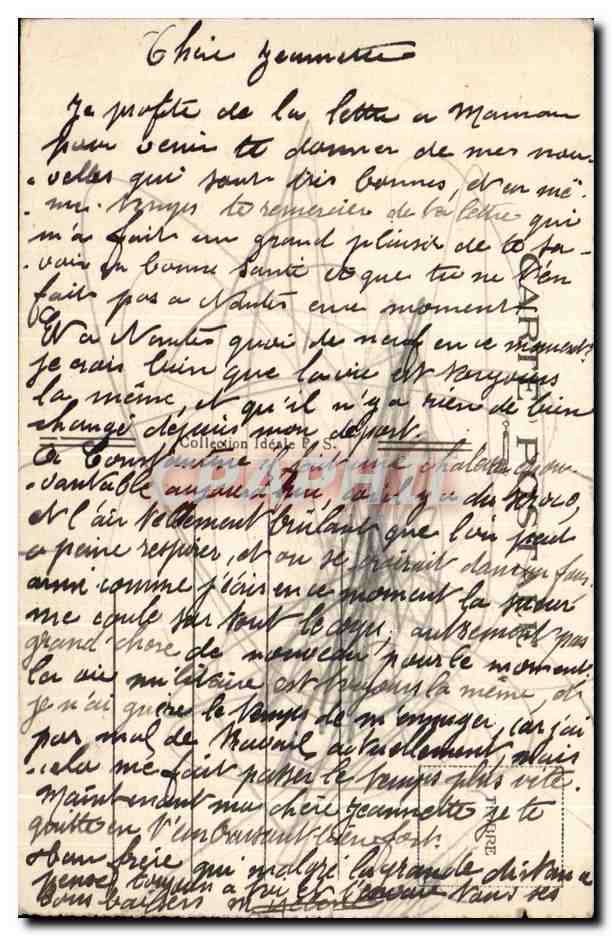 Chère Jeannette
Je profite de la lettre a Maman
pour venir te donner de mes nou-
-velles qui sont très bonnes, et en mê-
me temps te remercier de ta lettre qui
m'a fait un grand plaisir de te sa-
-voir en bonne santé et que tu ne t'en
fait pas a Nantes en ce moment.
Et a Nantes quoi de neuf en ce moment
je crois bien que la vie est toujours
la même, et qu'il n'y a rien de bien
changé depuis mon départ.
A Constantine il fait une chaleur épou-
-vantable aujourd'hui, il y a du siroco,
et l'air tellement brûlant que l'on peut
a peine respirer, et on se croirait dans un four
aussi comme j'écris en ce moment la sueur
me coule sur tout le corps, autrement pas
grand chose de nouveau pour le moment.
la vie militaire est toujours la même, et
je n'ai guère le temps de m'ennuyer, car j'ai
pas mal de travail actuellement, mais
cela me fait passer le temps plus vite.
Maintenant ma chère Jeannette je te
quitte en t'embrassant bien fort.
Ton frère qui malgré la grande distance
pense toujours a toi et t'envoie tous ses
bons baisers
CARTE POSTALE
Collection Idéale P. S.
TIMBRE
CPAPHIL